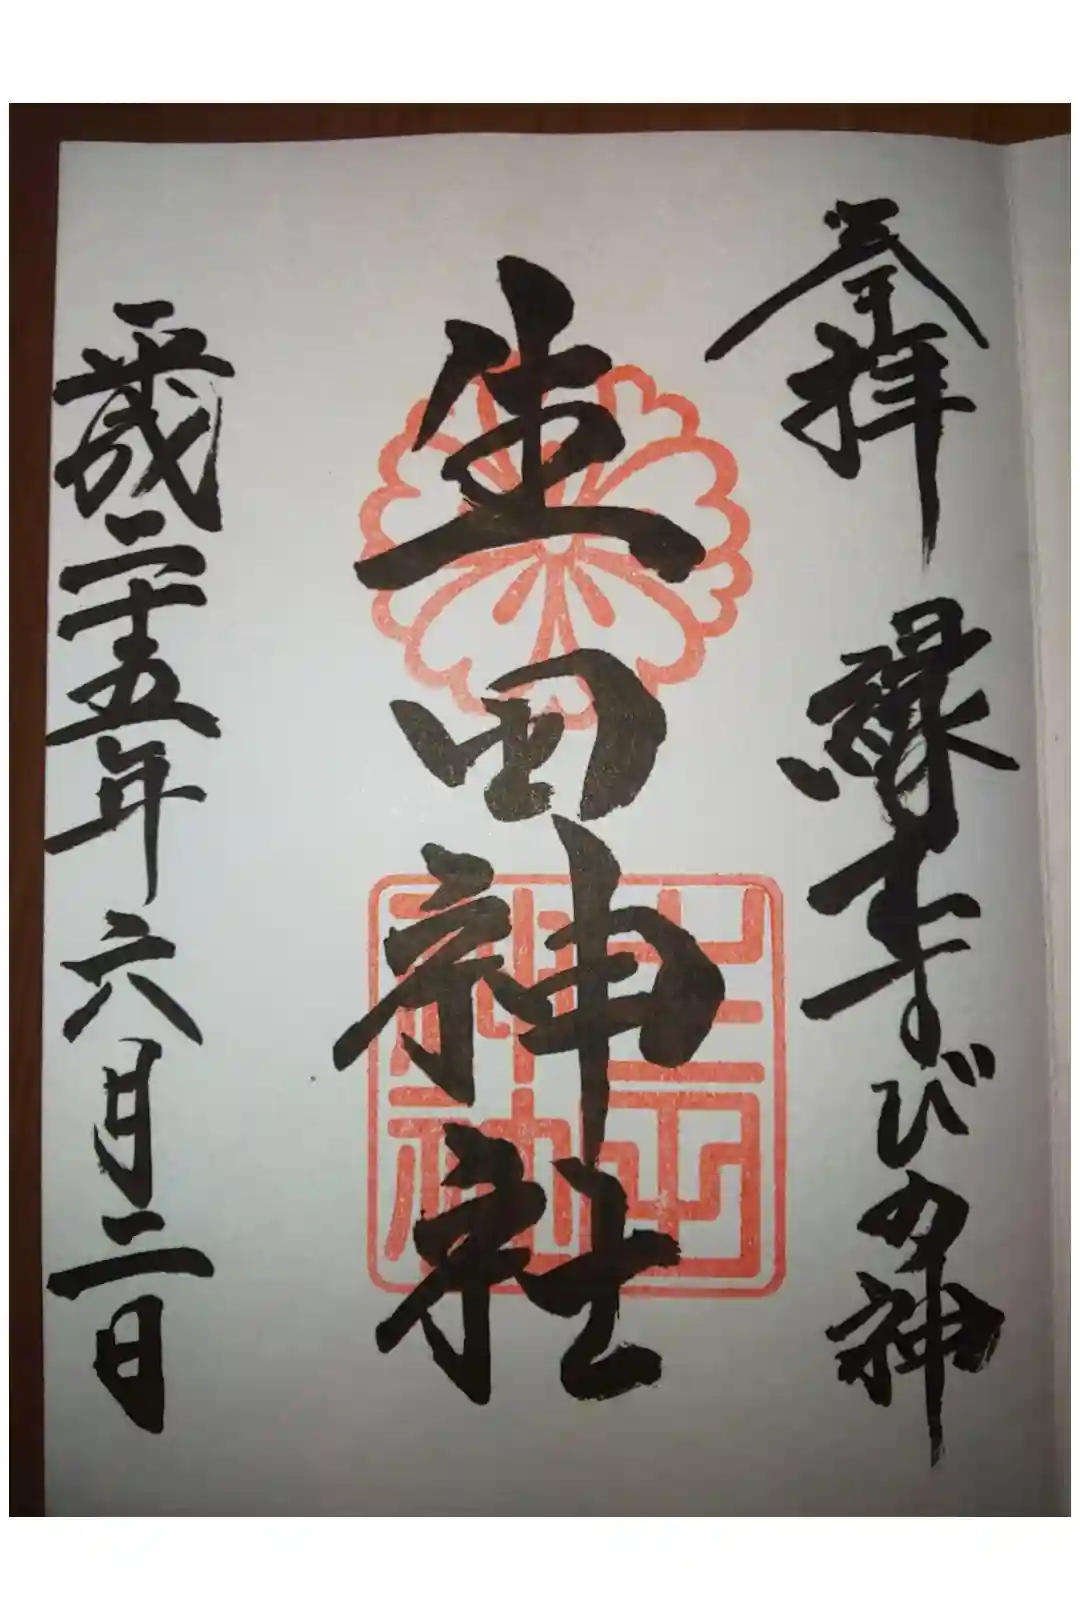 奉拝 縁むすびの神
生田神社
生田神社
平成二十五年六月二日